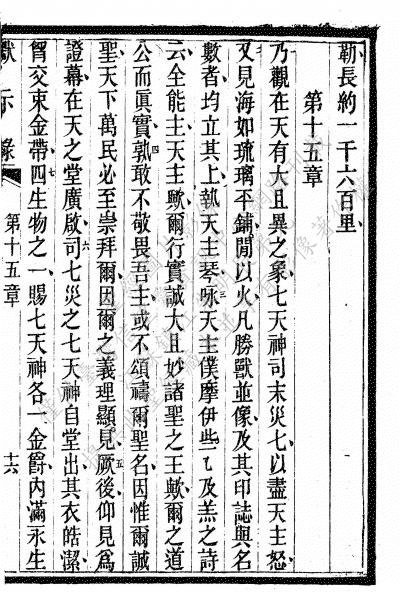 勒長約一千六百里
第十五章
乃觀在天有大且異之象七天神司末災七以盡天主怒
又見海如琉璃平鋪閒以火凡勝獸並像及其印誌與名
數者均立其上執天主琴咏天主僕摩伊些乀及羔之詩
云全能主天主歟爾行實誠大且妙諸聖之王歟爾之道
公而眞實孰敢不敬畏吾主或不頌禱爾聖名因惟爾誠
聖天下萬民必至崇拜爾因爾之義理顯見厥後仰見爲
證幕在天之堂廣啟司七災之七天神自堂出其衣皓潔
胷交束金帶四生物之一賜七天神各一金爵內滿永生
默示錄
第十五章
十六